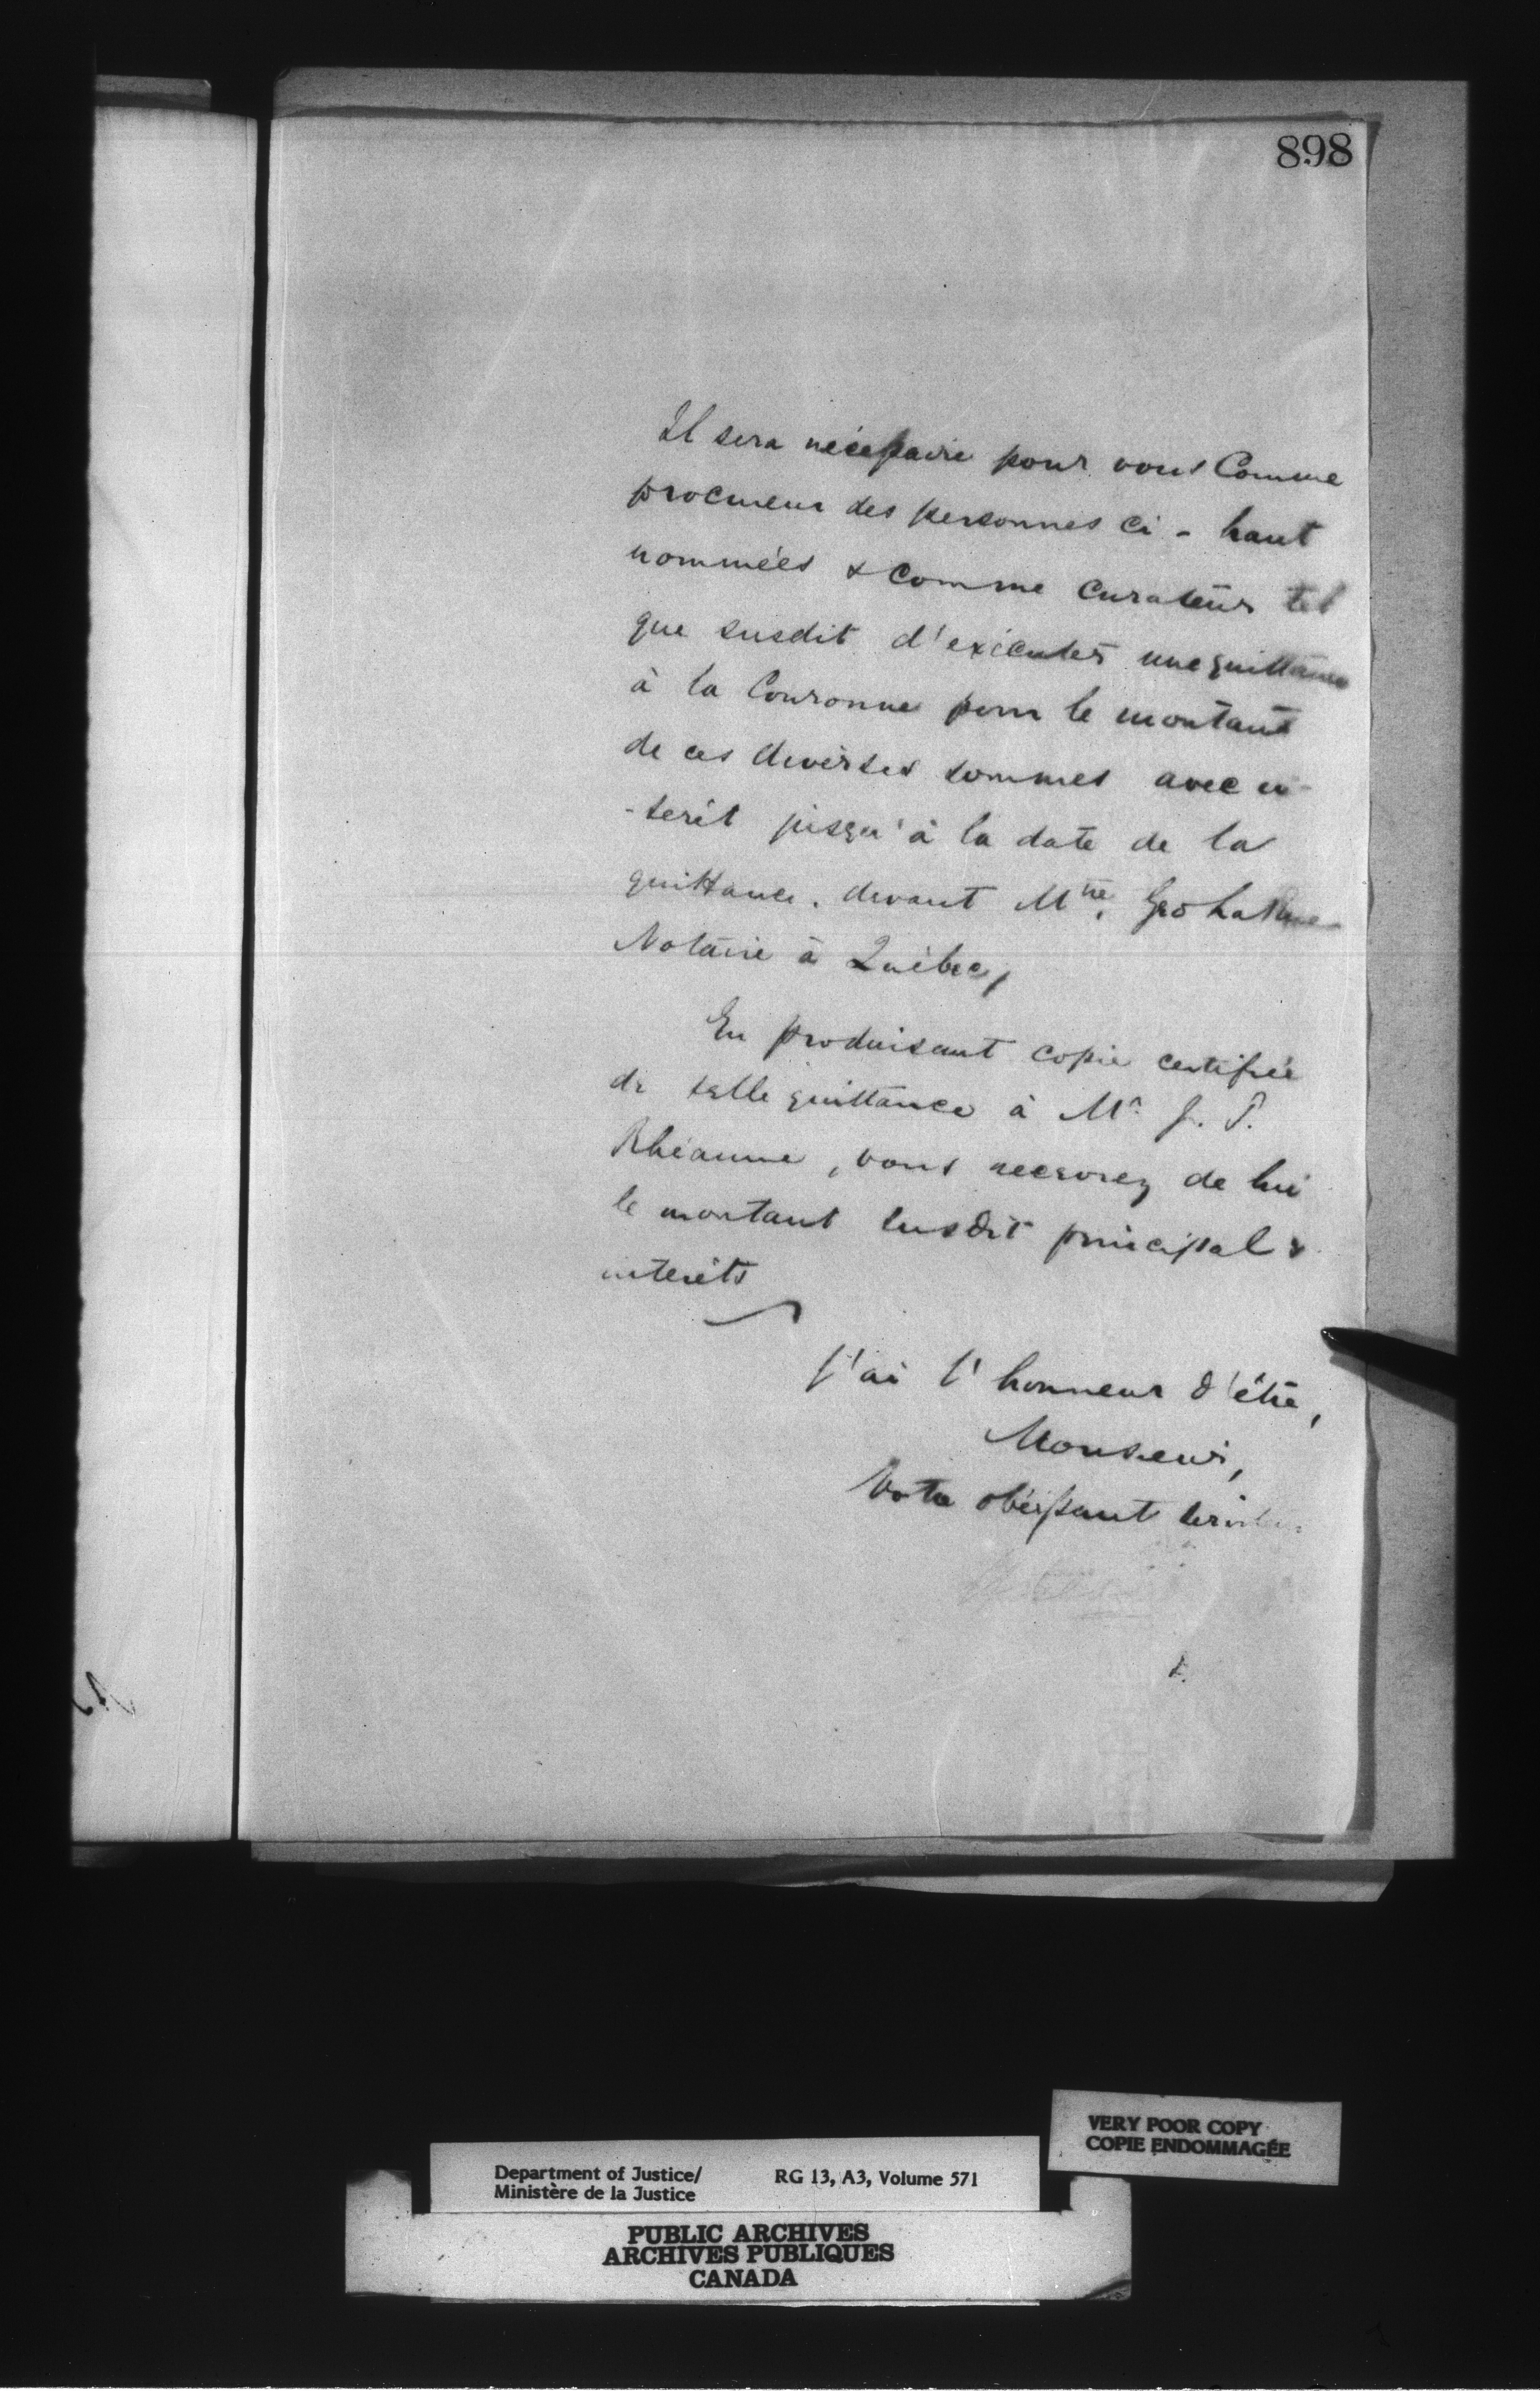 898
Il sera nécessaire pour vous Comme
procureur des personnes ci-haut
nommées & Comme Curateur tel
que susdit d'exécuter une quittance
à la Couronne pour le montant
de ces diverses sommes avec in-
-terêt jusqu'à la date de la
quittance. devant Mtre. Geo LaRue
Notaire à Québec,
En produisant copie certifiée
de telle quittance à Mr. J. P.
Rhéaume, vous recevrez de lui
le montant susdit principal &
interêts
J'ai l'honneur d'être,
Monsieur,
Votre obéissant
VERY POOR COPY
COPIE ENDOMMAGÉE
Department of Justice/ RG 13, A3, Volume 571
Ministère de la Justice
PUBLIC ARCHIVES
ARCHIVES PUBLIQUES
CANADA